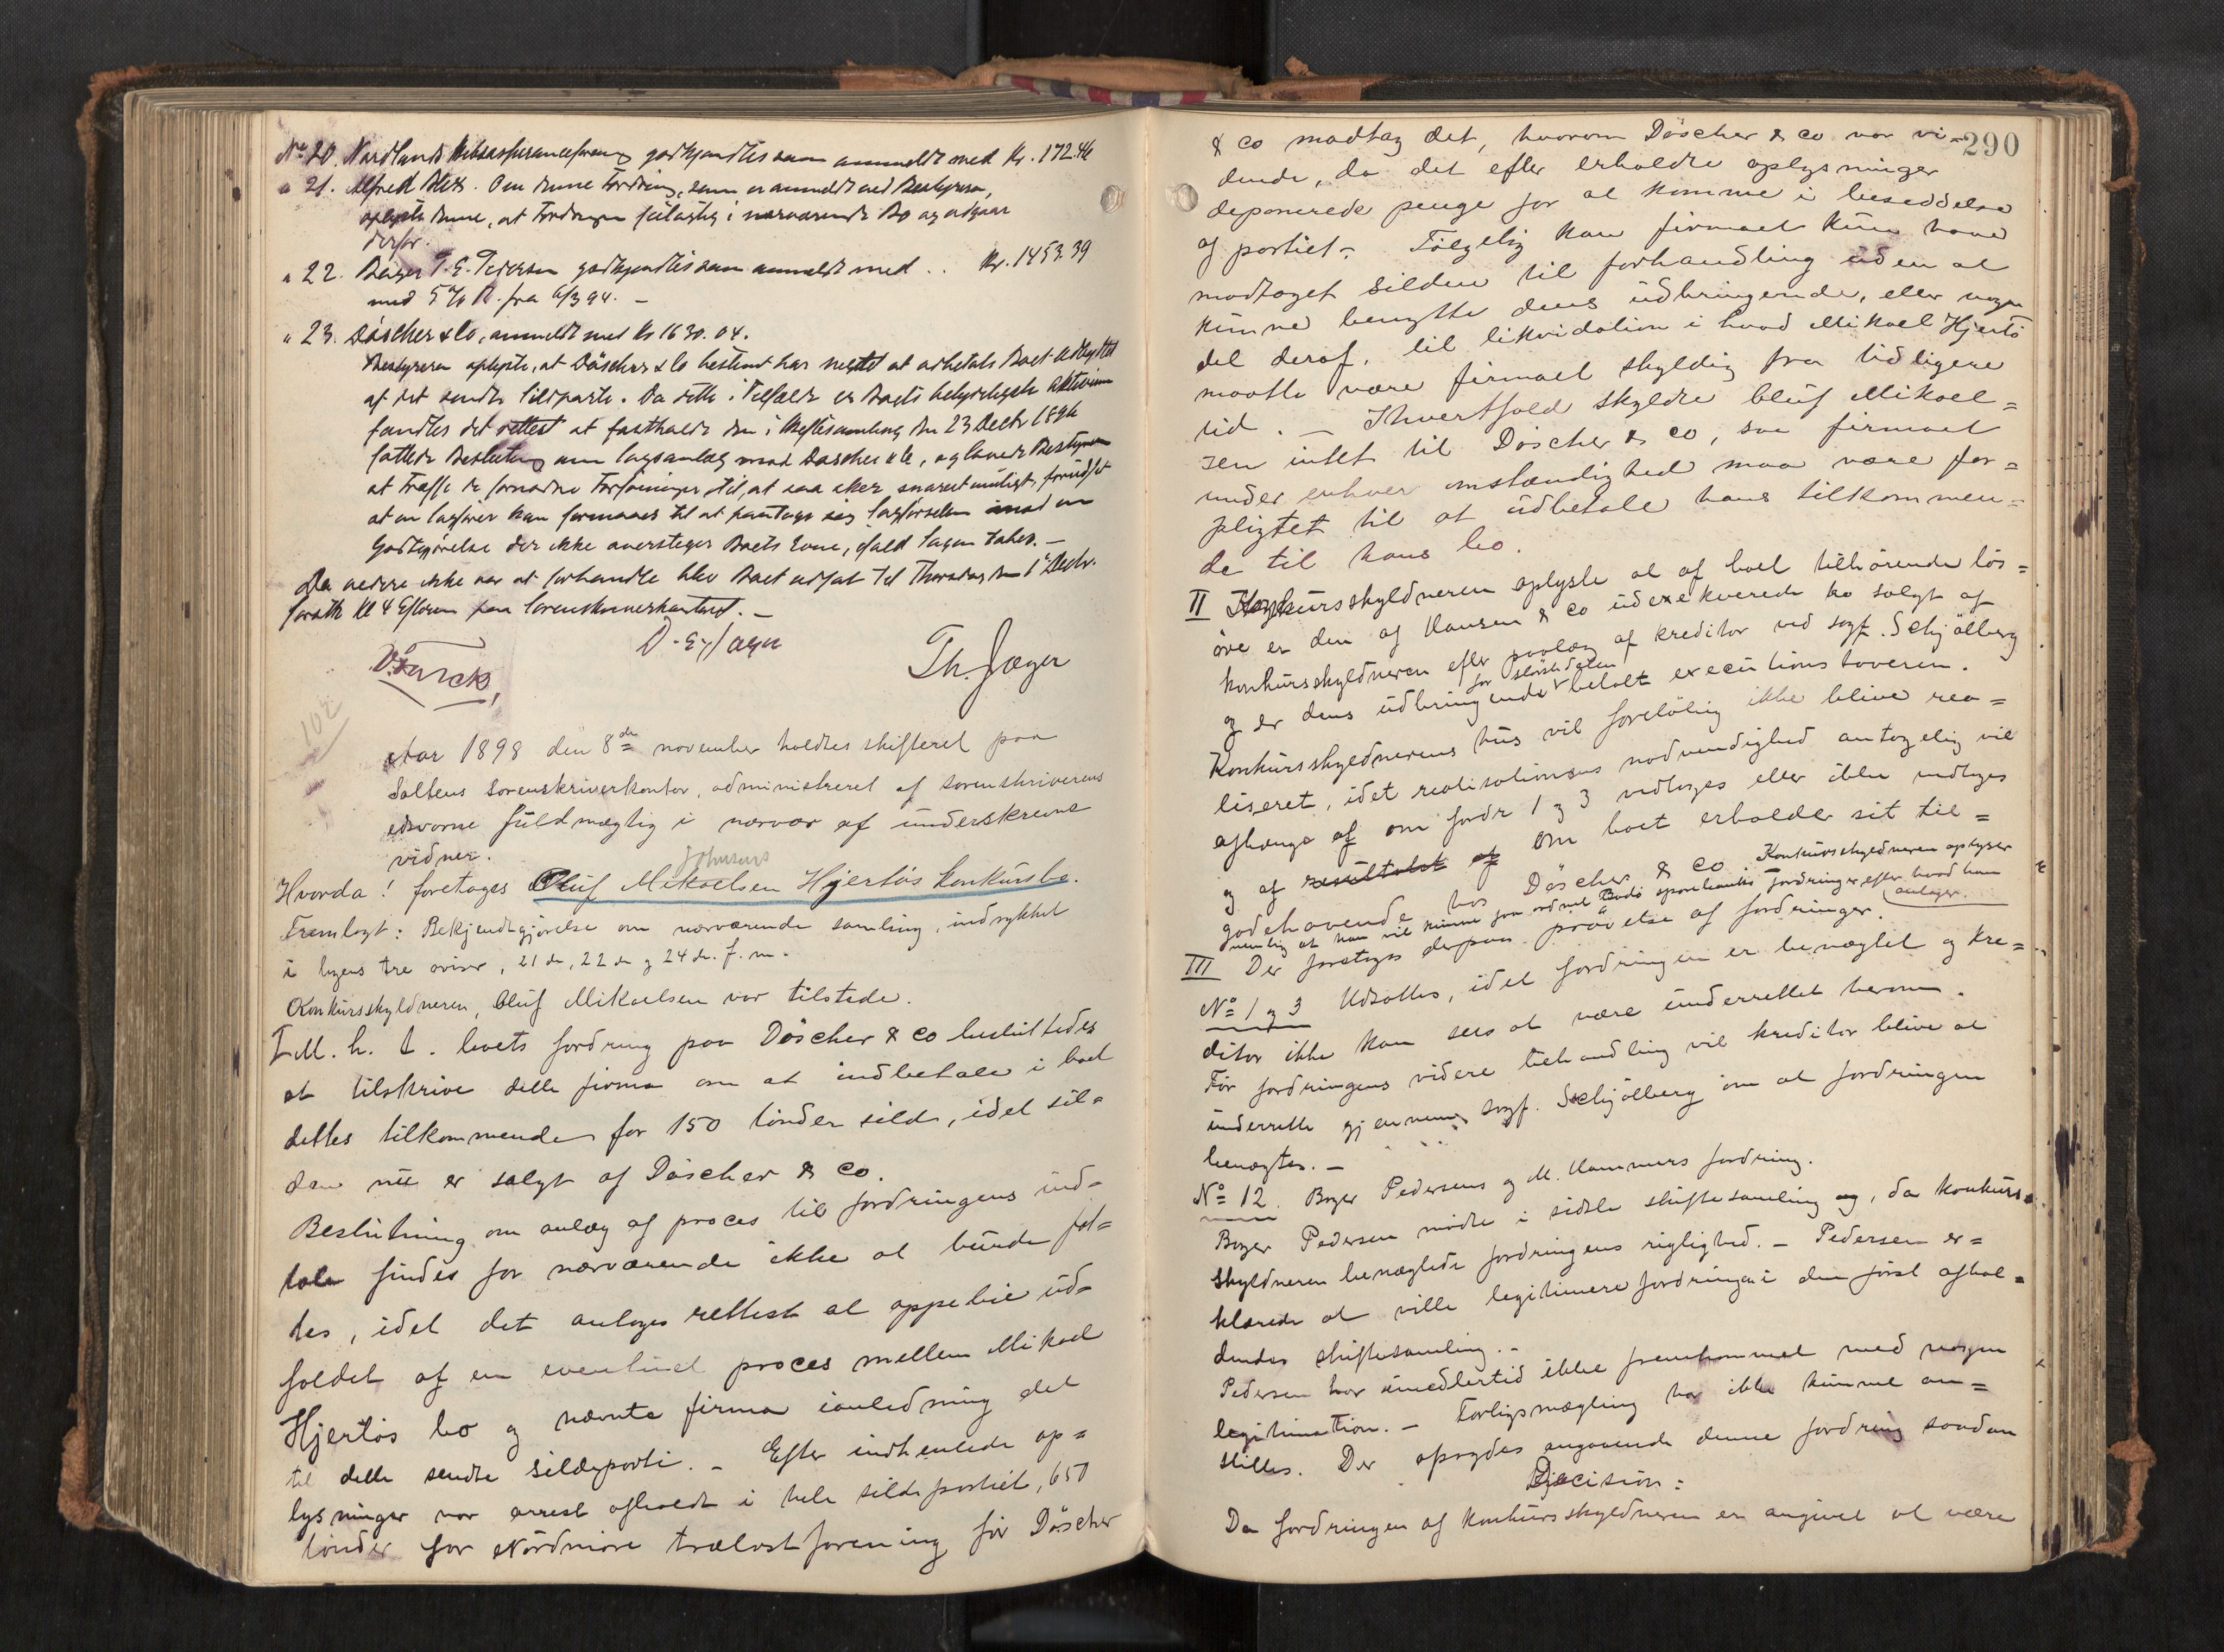 No 20. Nordlands godkjendtes som anmeldt med Kr. 172.46
" 21. Alfred Om denne Fordring, som er anmeldt ved Bestyreren,
oplyste denne, at Fordringen i nærværende Bo og udgaar
derfor.
" 22. P. E. Pedersen godkjendtes som anmeldt med .. Kr. 1453.39
med 5 % R. fra 6/3 94. –
" 23. Döscher & Co, anmeldt med Kr 1630.04.
Bestyreren oplyste, at Döscher & Co bestemt har negtet at udbetale Boet Udbyttet
af det sendte Sildparti. Da dette i Tilfælde er Boets betydeligste Aktivum
fandtes det rettest at fastholde den i Skiftesamling den 23 Decbr 1896
fattede Beslutning om Sagsanlæg mod Döscher & Co, og lovede Bestyreren
at træffe de fornødne Forføininger til, at saa sker snarest muligt, forudsat
at en Sagfører kan formaaes til at paatage sig Sagførselen mod en
Godtgjörelse der ikke oversteiger Boets Evne, ifald Sagen tabes. –
Da videre ikke var at forhandle blev Boet udsat til Thorsdag den 1ste Decbr.
førstk Kl 4 Efterm paa Sorenskriverkontoret. –
Th. Jæger
Aar 1898 den 8de november holdtes skifteret paa
Saltens sorenskriverkontor, administreret af sorenskriverens
edsvorne fuldmægtig i nærvær af underskrevne
vidner.
Johnsens
Hvorda! foretoges Oluf Mikaelsen Hjertös konkursbo.
Fremlagt: Bekjendtgjörelse om nærværende samling, indrykket
i byens tre aviser, 21de, 22de og 24de f. m.
Konkursskyldneren, Oluf Mikaelsen var tilstede.
I M. h. t. boets fordring paa Döscher & Co besluttedes
at tilskrive dette firma om at indbetale i boet
dettes tilkommende for 150 tönder sild, idet sil=
den nu er solgt af Döscher & Co.
Beslutning om anlæg af proces til fordringens ind=
tale findes for nærværende ikke at burde fat=
tes, idet det antages rettest at oppebie ud=
faldet af en eventuel proces mellem Mikael
Hjertös bo og nævnte firma ianledning det
til dette sendte sildeparti. – Efter indhentede op=
lysninger var arrest afholdt i hele sildepartiet, 650
tönder for Nordmöre trælastforening för Döscher
290
& Co modtog det, hvorom Döscher & Co var vi=
dende, da det efter erholdte oplysninger
deponerede penge for at komme i besiddelse
af partiet. – Fölgelig kan firmaet kun have
modtaget silden til forhandling uden at
kunne benytte dens udbringende, eller nogen
del deraf, til likvidation i hvad Mikael Hjertö
maatte være firmaet skyldig fra tidligere
tid. – Ihvertfald skyldte Oluf Mikael=
sen intet til Döscher & Co, saa firmaet
under enhver omstændighed maa være for=
pligtet til at udbetale hans tilkommen=
de til hans bo.
II Konkursskyldneren oplyste at af boet tilhörende lös=
öre er den af Hansen & Co udexekverede ko solgt af
konkursskyldneren efter paalæg af kreditor ved sagf. Schjölberg
for störstedelen
og er dens udbringende betalt executionshaveren.
Konkursskyldnerens hus vil forelöbig ikke blive rea=
liseret, idet realisationens nödvendighed antagelig vil
afhænge af om fordr 1 og 3 vedtages eller ikke vedtages
og af resultatet af om boet erholder sit til=
godehavende hos Döscher & Co. Konkursskyldneren oplyser
nemlig at han vil kunne faa ordnet Bodö sparebanks fordringer, efter hvad han
antager.
III Der foretoges derpaa prövelse af fordringer.
No 1 og 3 Udsattes, idet fordringen er benægtet og kre=
ditor ikke kan sees at være underrettet herom.
För fordringens videre behandling vil kreditor blive at
underrette gjennem sagf. Schjölberg om at fordringen
benægtes. –
No 12. Boger Pedersens og M. Hammers fordring.
Boger Pedersen mödte i sidste skiftesamling og, da konkurs=
skyldneren benægtede fordringens rigtighed. – Pedersen er=
klærede at ville legitimere fordringen i den först afhol=
dendes skiftesamling. –
Pedersen har imidlertid ikke fremkommet med nogen
legitimation. – Forligsmægling har ikke kunnet an=
stilles. Der afsagdes angaaende denne fordring saadan
Decision:
Da fordringen af konkursskyldneren er angivet at være